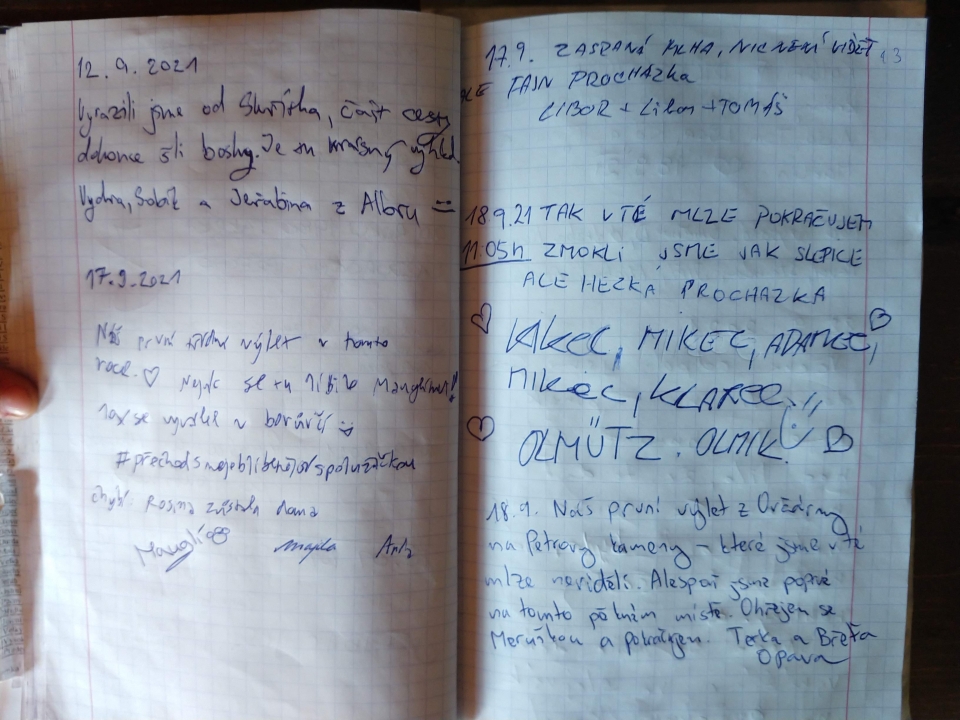 12.9.2021
Vyrazili jsme od Skřítka, část cesty
dokonce šli bosky. Je tu krásný výhled.
Vydra, Sobík a Jeřabina z Alboru =
17.9.2021
Náš první výlet v tomto
roce. ♡ Nejvíc se tu líbilo Mauglímu!!
v borůvčí
chybí: Rosina zůstala doma
Mauglí Majka
17.9. ZASRANÁ MLHA, NIC NENÍ VIDĚT
ALE FAJN PROCHÁZKA
LIBOR + Libor + TOMÁŠ
18.9.21 TAK V TÉ MLZE POKRAČUJEM
11.05h ZMOKLI JSME JAK SLEPICE
ALE HEZKÁ PROCHÁZKA
KIKEC, MIKEC, ADAMEC,
MIKEC, KLAREC..!!
OLMÜTZ. OLMIK!
18.9. Náš první výlet z Ovčárny
na Petrovy kameny – které jsme v té
mlze neviděli. Alespoň jsme poprvé
na tomto pěkném místě. Ohřejem se
Meruňkou a pokračujem. Terka a Břéťa
Opava